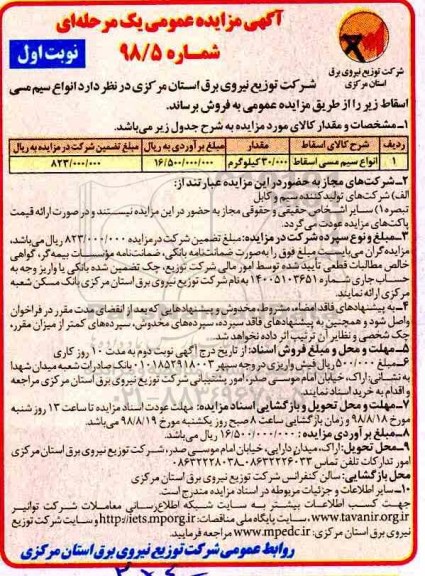 آگهی مزایده عمومی یک مرحله‌ای
شماره ۹۸/۵
نوبت اول
شرکت توزیع نیروی برق
استان مرکزی
شرکت توزیع نیروی برق استان مرکزی در نظر دارد انواع سیم مسی
اسقاط زیر را از طریق مزایده عمومی به فروش برساند.
۱ـ مشخصات و مقدار کالای مورد مزایده به شرح جدول زیر می‌باشد.
ردیف شرح کالای اسقاط مقدار مبلغ برآوردی به ریال مبلغ تضمین شرکت در مزایده به ریال
۱ انواع سیم مسی اسقاط ۳۰/۰۰۰ کیلوگرم ۱۶/۵۰۰/۰۰۰/۰۰۰ ۸۲۳/۰۰۰/۰۰۰
۲ـ شرکت‌های مجاز به حضور در این مزایده عبارتند از:
الف) شرکت‌های تولید کننده سیم و کابل
تبصره۱) سایر اشخاص حقیقی و حقوقی مجاز به حضور در این مزایده نیستند و در صورت ارائه قیمت
پاکت‌های مزایده عودت می‌گردد.
۳ـ مبلغ و نوع سپرده شرکت در مزایده: مبلغ تضمین شرکت در مزایده ۸۲۳/۰۰۰/۰۰۰ ریال می‌باشد،
مزایده‌گران می‌بایست مبلغ فوق را به‌صورت ضمانت‌نامه بانکی، ضمانت‌نامه مؤسسات بیمه‌گر، گواهی
خالص مطالبات قطعی تایید شده توسط امور مالی شرکت توزیع، چک تضمین شده بانکی یا واریز وجه به
حساب جاری شماره ۱۴۰۰۵۱۰۳۶۵۱ به نام شرکت توزیع نیروی برق استان مرکزی بانک مسکن شعبه
مرکزی ارائه نمایند.
۴ـ به پیشنهادهای فاقد امضاء، مشروط، مخدوش و پیشنهادهایی که بعد از انقضای مدت مقرر در فراخوان
واصل شود و همچنین به پیشنهادهای فاقد سپرده، سپرده‌های مخدوش، سپرده‌های کمتر از میزان مقرر،
چک شخصی و نظایر آن ترتیب اثر داده نخواهد شد.
۵ـ مهلت و محل و مبلغ فروش اسناد: از تاریخ درج آگهی نوبت دوم به مدت ۱۰ روز کاری
۶ـ مبلغ ۵۰۰/۰۰۰ ریال فیش واریزی در وجه سپهر بانک صادرات شعبه میدان شهدا
به نشانی: اراک، خیابان امام موسی صدر، امور پشتیبانی شرکت توزیع نیروی برق استان مرکزی مراجعه
و اقدام به خرید اسناد نمایند.
۷ـ مهلت و محل تحویل و بازگشایی اسناد مزایده: مهلت عودت اسناد مزایده تا ساعت ۱۳ روز شنبه
مورخ ۹۸/۸/۱۸ و زمان بازگشایی ساعت ۸ صبح روز یکشنبه مورخ ۹۸/۸/۱۹ می‌باشد.
۸ـ مبلغ برآوردی مزایده: ۱۶/۵۰۰/۰۰۰/۰۰۰ ریال می‌باشد.
۹ـ محل تحویل: اراک، میدان دارایی، خیابان امام موسی صدر، شرکت توزیع نیروی برق استان مرکزی
امور تدارکات تلفن تماس ۰۸۶۳۲۲۲۶۰۳۳ـ۰۸۶۳۲۲۲۸۰۳۸
محل بازگشایی: سالن کنفرانس شرکت توزیع نیروی برق استان مرکزی
۱۰ـ سایر اطلاعات و جزئیات مربوطه در اسناد مزایده مندرج است.
جهت کسب اطلاعات بیشتر به سایت شبکه اطلاع‌رسانی معاملات شرکت توانیر
www.tavanir.org.ir، سایت پایگاه ملی مناقصات: http://iets.mporg.ir و سایت شرکت توزیع
نیروی برق استان مرکزی: www.mpedc.ir مراجعه فرمایید.
روابط عمومی شرکت توزیع نیروی برق استان مرکزی